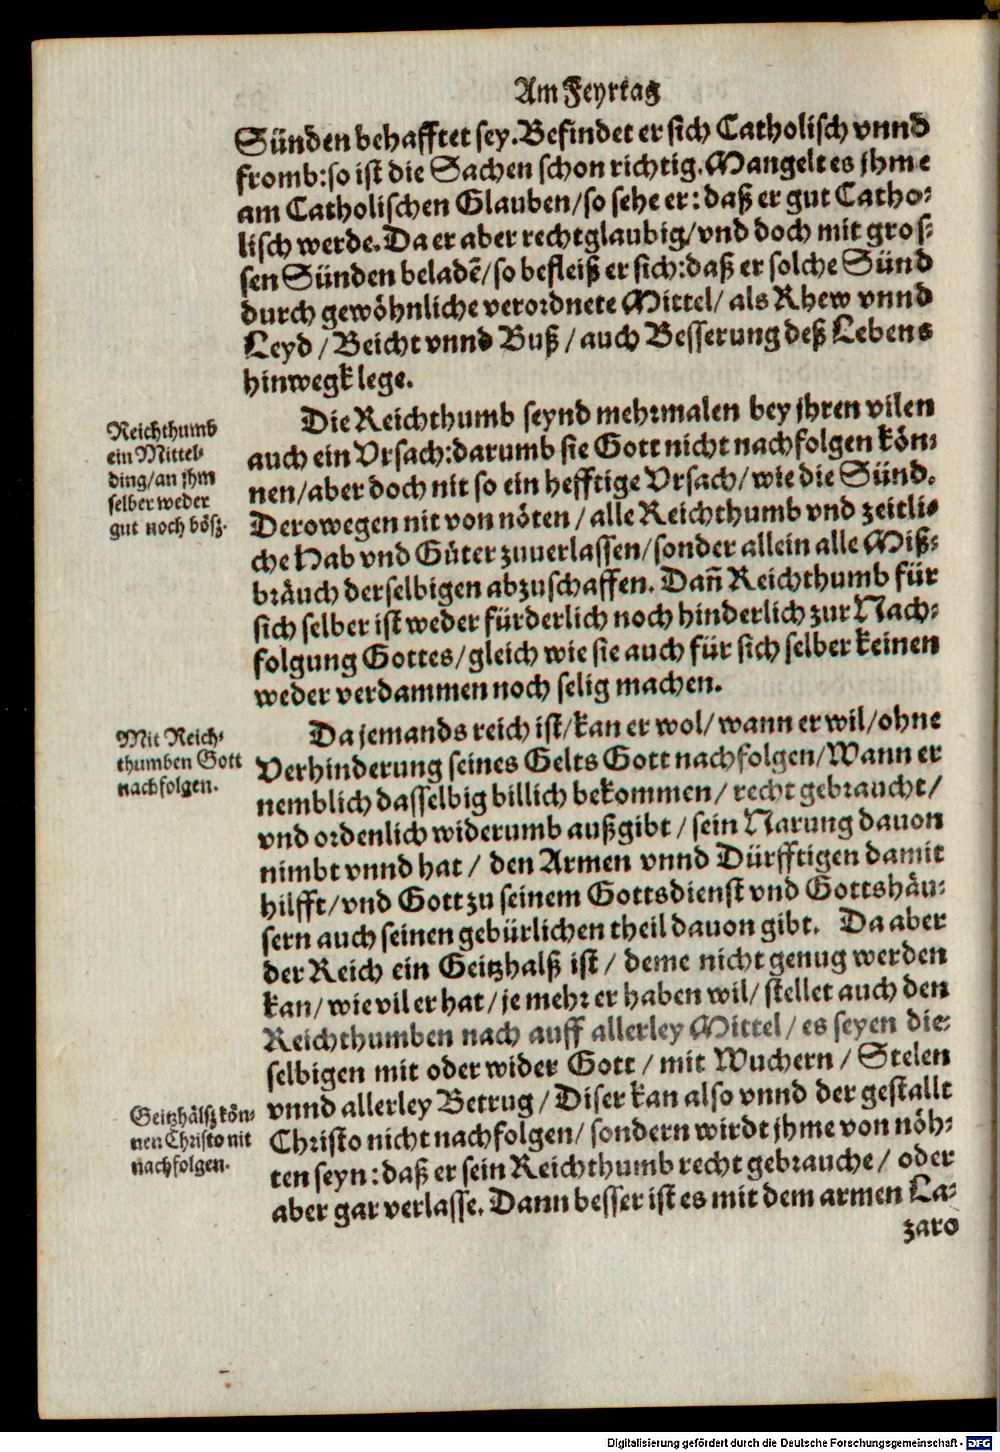 Am Feyrtag
Sünden behafftet sey. Befindet er sich Catholisch vnnd
fromb: so ist die Sachen schon richtig. Mangelt es jhme
am Catholischen Glauben/ so sehe er: daß er gut Catho-
lisch werde. Da er aber rechtglaubig/ vnd doch mit gros-
sen Sünden beladē/ so befleiß er sich: daß er solche Sünd
durch gewöhnliche verordnete Mittel/ als Rhew vnnd
Leyd / Beicht vnnd Buß / auch Besserung deß Lebens
hinwegk lege.
Reichthumb
ein Mittel-
ding/ an jhm
selber weder
gut noch bösz.
Die Reichthumb seynd mehrmalen bey jhren vilen
auch ein Vrsach: darumb sie Gott nicht nachfolgen kön-
nen/ aber doch nit so ein hefftige Vrsach/ wie die Sünd.
Derowegen nit von nöten / alle Reichthumb vnd zeitli-
che Hab vnd Güter zuuerlassen/ sonder allein alle Miß-
bräuch derselbigen abzuschaffen. Dañ Reichthumb für
sich selber ist weder fürderlich noch hinderlich zur Nach-
folgung Gottes/ gleich wie sie auch für sich selber keinen
weder verdammen noch selig machen.
Mit Reich-
thumben Gott
nachfolgen.
Da jemands reich ist/ kan er wol/ wann er wil/ ohne
Verhinderung seines Gelts Gott nachfolgen/ Wann er
nemblich dasselbig billich bekommen/ recht gebraucht/
vnd ordenlich widerumb außgibt / sein Narung dauon
nimbt vnnd hat / den Armen vnnd Dürfftigen damit
hilfft/ vnd Gott zu seinem Gottsdienst vnd Gottshäu-
sern auch seinen gebürlichen theil dauon gibt. Da aber
der Reich ein Geitzhalß ist / deme nicht genug werden
kan/ wie vil er hat/ je mehr er haben wil/ stellet auch den
Reichthumben nach auff allerley Mittel/ es seyen die-
selbigen mit oder wider Gott / mit Wuchern / Stelen
vnnd allerley Betrug / Diser kan also vnnd der gestallt
Christo nicht nachfolgen/ sondern wirdt jhme von nöh-
ten seyn: daß er sein Reichthumb recht gebrauche/ oder
aber gar verlasse. Dann besser ist es mit dem armen La-
zaro
Geitzhälsz kön-
nen Christo nit
nachfolgen.
Digitalisierung gefördert durch die Deutsche Forschungsgemeinschaft - DFG